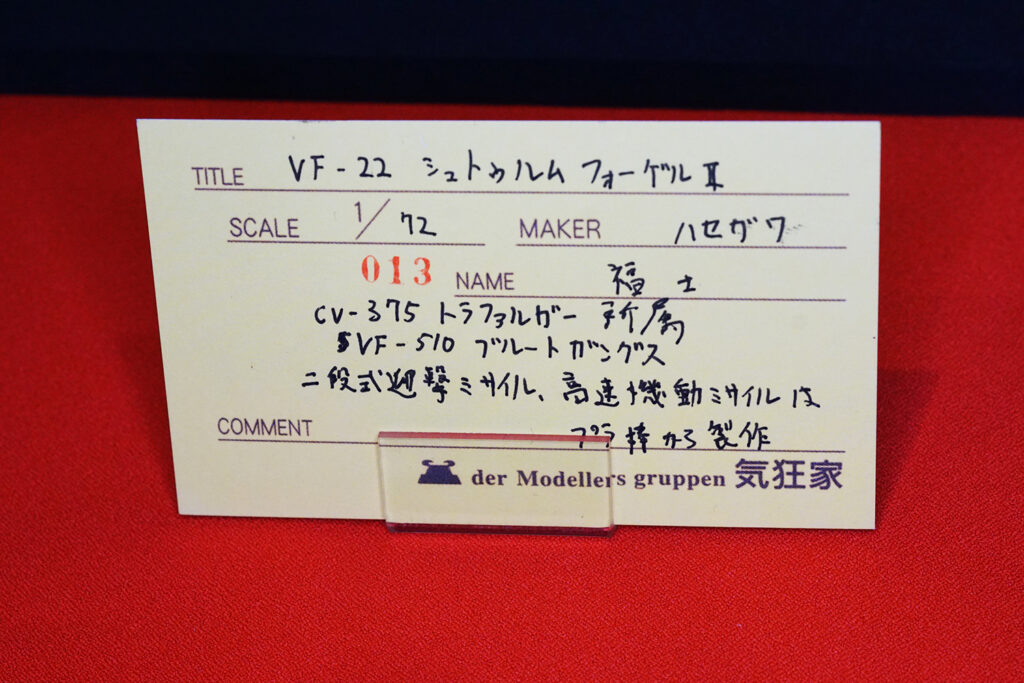 TITLE VF-22 シュトゥルム フォーゲルⅡ
SCALE 1/72 MAKER ハセガワ
013 NAME 福士
CV-375 トラファルガー 所属
SVF-510 ブルートガングス
二段式迎撃ミサイル、高速機動ミサイルは
COMMENT プラ棒から製作
der Modellers gruppen 気狂家